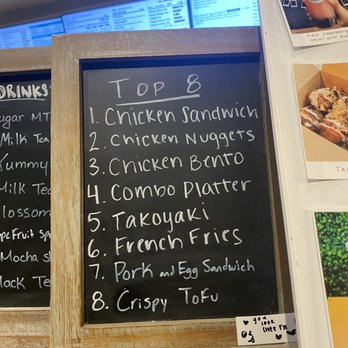 DRINKS
MT
Milk Tea
Yummy
Milk Tea
Blossom
Mocha
Tea
Top 8
1. Chicken Sandwich
2. Chicken Nuggets
3. Chicken Bento
4. Combo Platter
5. Takoyaki
6. French Fries
7. Pork and Egg Sandwich
8. Crispy Tofu
you
look